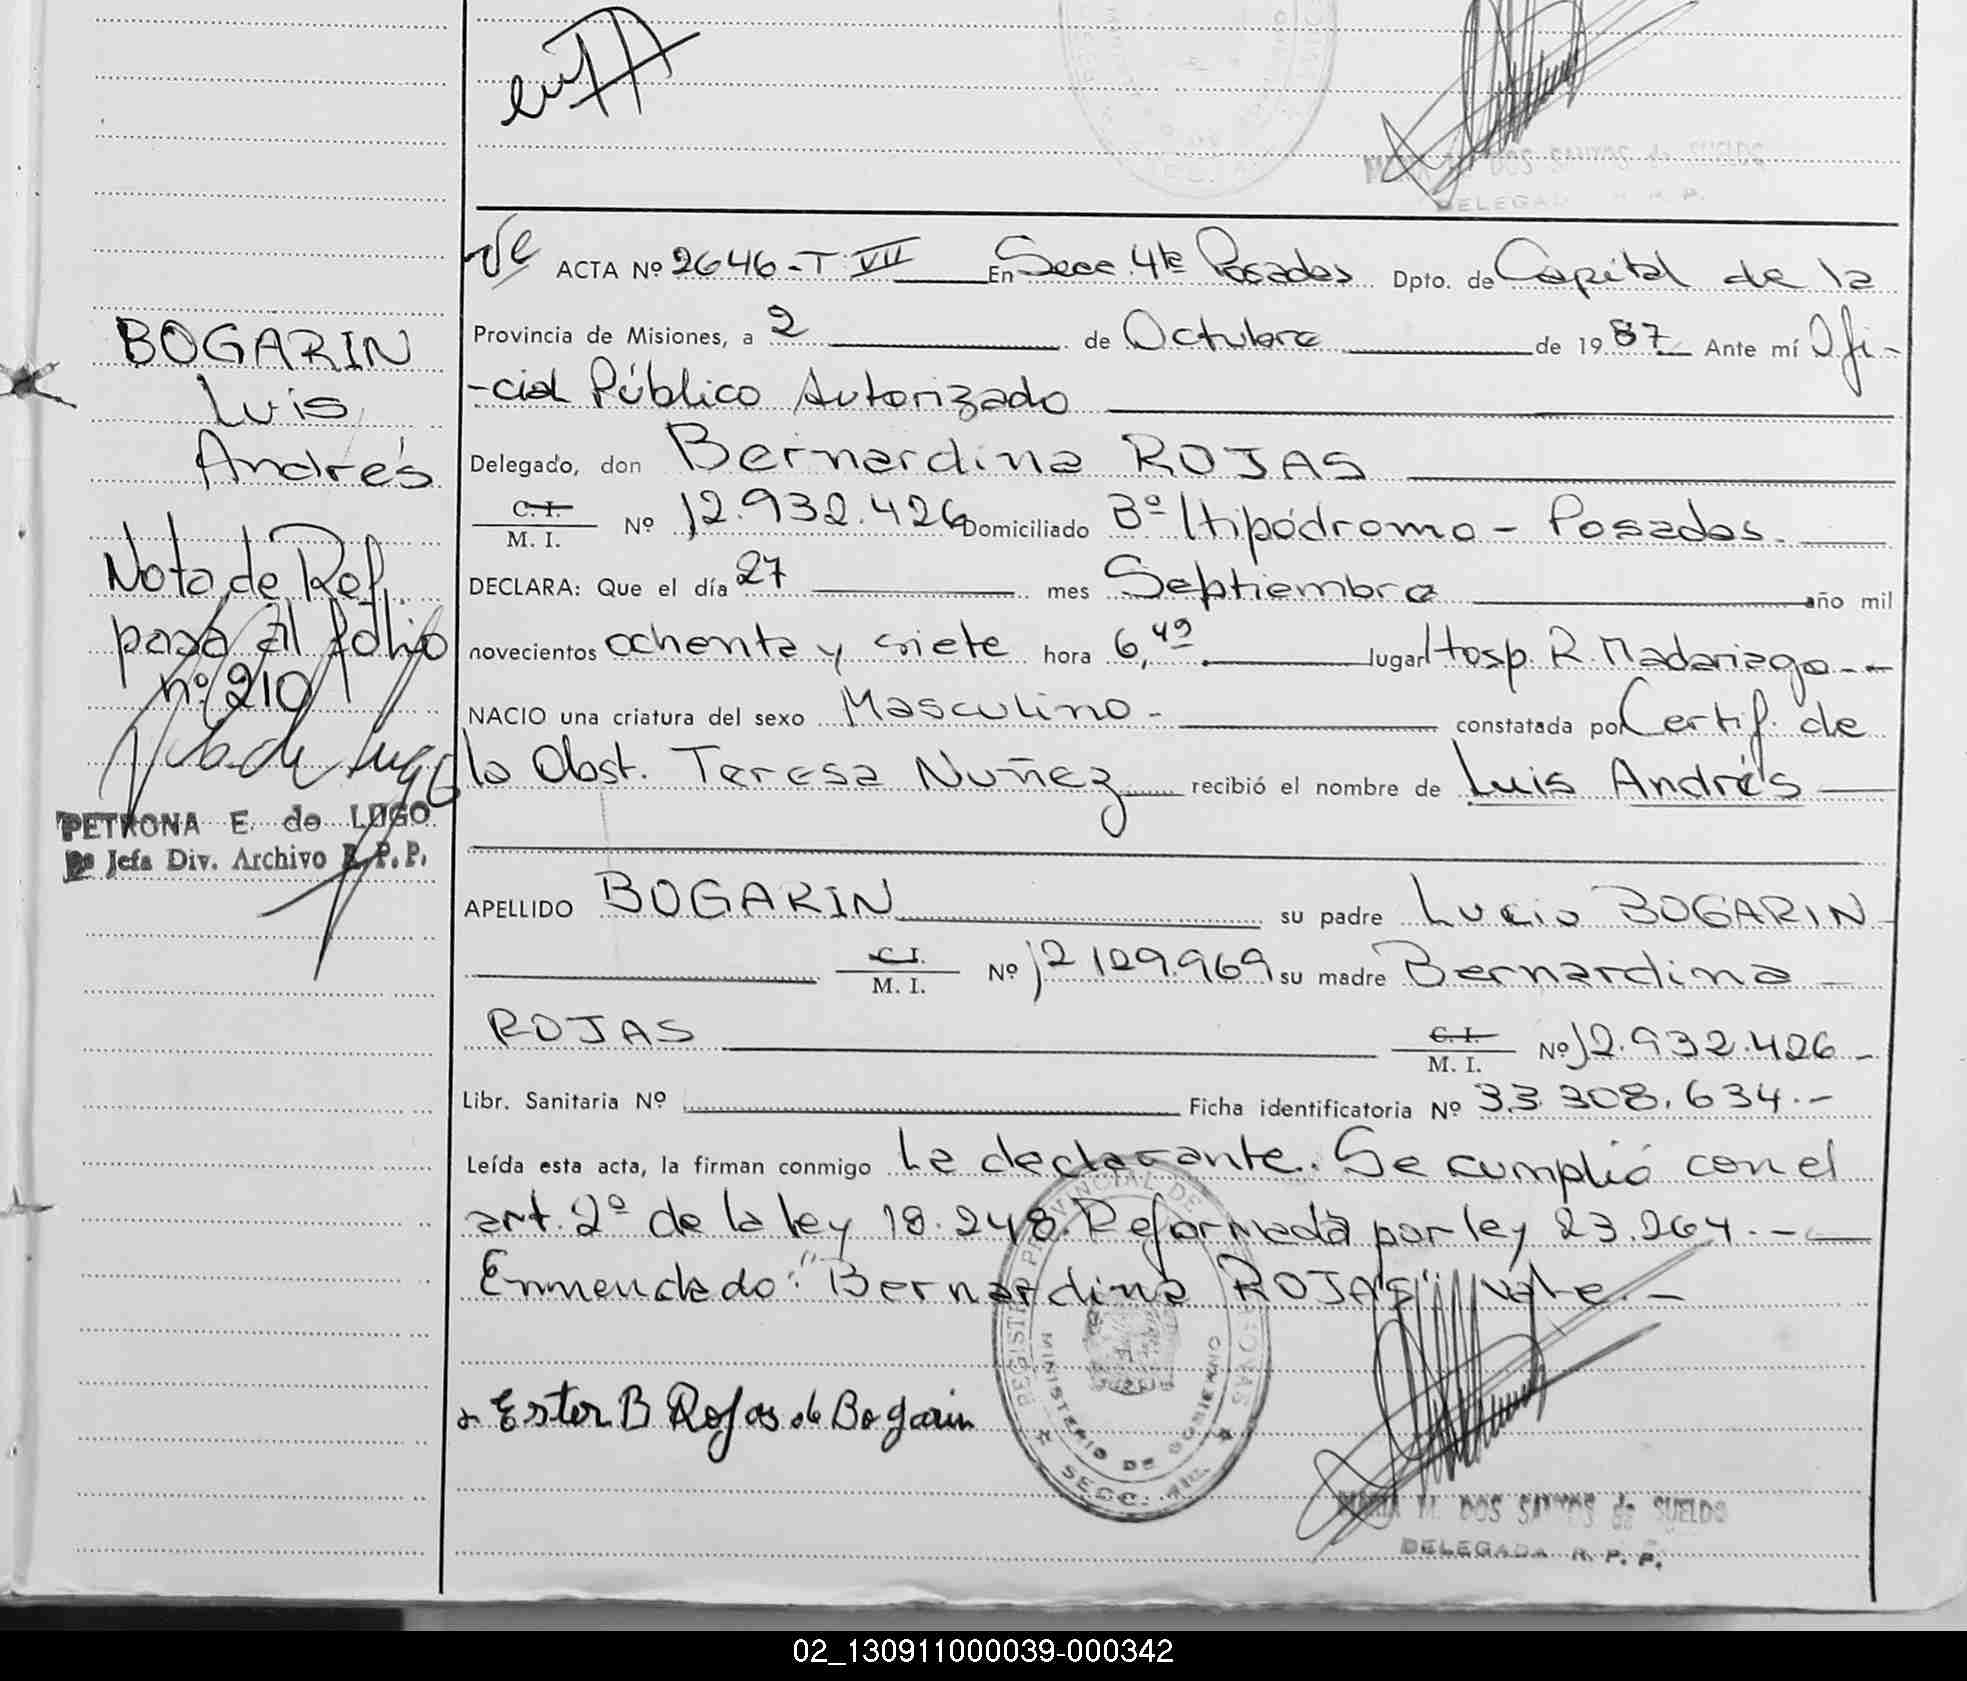 MARIA M. DOS SANTOS de SUELDO
DELEGADA R. P. P.
ACTA Nº 2646-T VII En Secc. 4ta Posadas Dpto. de Capital de la
Provincia de Misiones, a 2 de Octubre de 1987 Ante mí Ofi-
-cial Público Autorizado
Delegado, don Bernardina ROJAS
C.I. M. I. Nº 12.932.426 Domiciliado Bº Hipódromo - Posadas.
DECLARA: Que el día 27 mes Septiembre año mil
novecientos ochenta y siete hora 6,49 lugar Hosp. R. Madariaga--
NACIO una criatura del sexo Masculino - constatada por Certif. de
la Obst. Teresa Nuñez recibió el nombre de Luis Andrés
APELLIDO BOGARIN su padre Lucio BOGARIN -
C.I. M. I. Nº 12 129.969 su madre Bernardina -
ROJAS C.I. M. I. Nº 12.932.426 -
Libr. Sanitaria Nº Ficha identificatoria Nº 33.308.634.-
Leída esta acta, la firman conmigo la declarante. Se cumplió con el
art. 2º de la ley 18.248. Reformada por ley 23.264.-
Enmendado: "Bernardina ROJAS" Vale.-
Ester B Rojas de Bogarin
REGISTRO PROVINCIAL DE PERSONAS
MINISTERIO DE GOBIERNO
SECC.
MARIA M. DOS SANTOS de SUELDO
DELEGADA R. P. P.
BOGARIN
Luis
Andrés
Nota de Ref.
pasa al folio
nº 210
PETRONA E. de LUGO
Jefa Div. Archivo R.P.P.
02_130911000039-000342